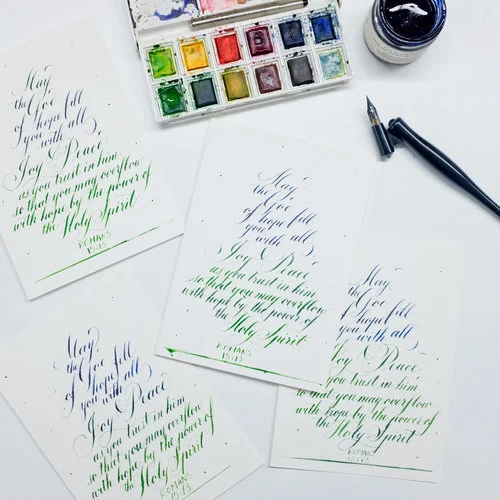 May
the God
of hope fill
you with all
Joy & Peace
as you trust in him
so that you may overflow
with hope by the power of
the Holy Spirit
ROMANS
15:13
May
the God
of hope fill
you with all
Joy & Peace
as you trust in him
so that you may overflow
with hope by the power of
the Holy Spirit
ROMANS
15:13
May
the God
of hope fill
you with all
Joy & Peace
as you trust in him
so that you may overflow
with hope by the power of
the Holy Spirit
ROMANS
15:13
May
the God
of hope fill
you with all
Joy & Peace
you trust in him
so that you may overflow
with hope by the power of
the Holy Spirit
ROMANS
15:13